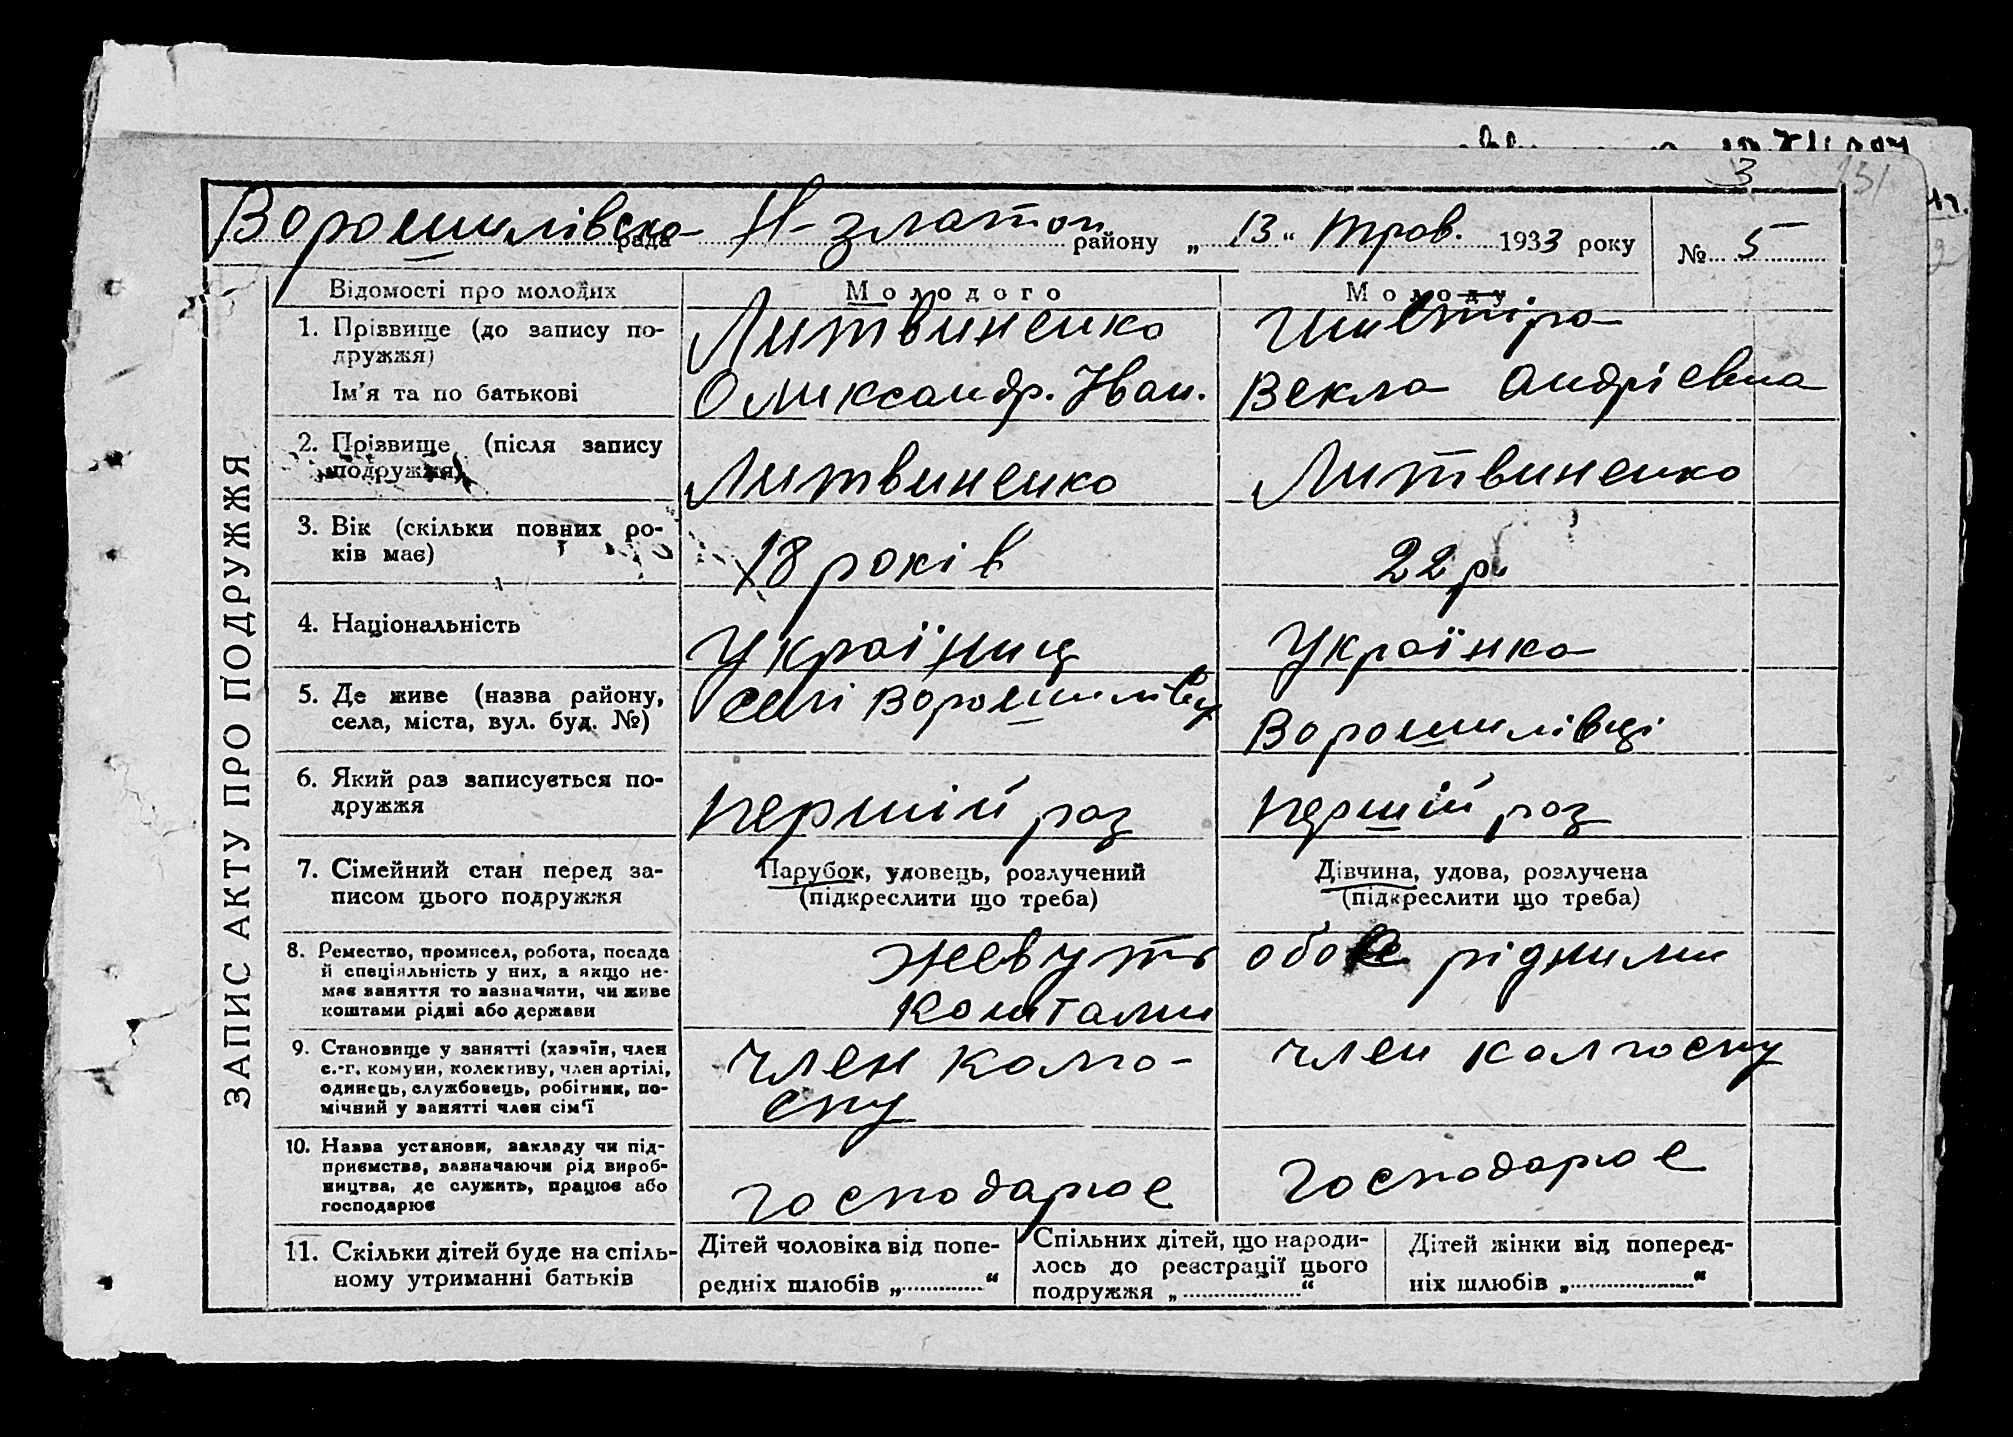 3 151
Ворошилівска рада Н-златоп району „13“ трав. 1933 року № 5
ЗАПИС АКТУ ПРО ПОДРУЖЖЯ
Відомості про молодих Молодого Молоду
1. Прізвище (до запису по-
дружжя)
Литвиненко
Ім'я та по батькові
Оликсандр. Іван. Векла Андрієвна
2. Прізвище (після запису
подружжя)
Литвиненко Литвиненко
3. Вік (скільки повних ро-
ків має)
18 років 22 р.
4. Національність
Україниц Українка
5. Де живе (назва району,
села, міста, вул. буд. №)
селі Ворошилівц Ворошилівці
6. Який раз записується по-
дружжя
першій раз першій раз
7. Сімейний стан перед за-
писом цього подружжя
Парубок, удовець, розлучений
(підкреслити що треба)
Дівчина, удова, розлучена
(підкреслити що треба)
8. Ремество, промисел, робота, посада
й спеціяльність у них, а якщо не-
має заняття то зазначити, чи живе
коштами рідні або держави
жевуть обое рідними
коштами
9. Становище у занятті (хазяїн, член
с.-г. комуни, колективу, член артілі,
одинець, службовець, робітник, по-
мічний у занятті член сім'ї
член колго-
спу
член колгоспу
10. Назва установи, закладу чи під-
приємства, зазначаючи рід вироб-
ництва, де служить, працює або
господарює
господарює господарює
11. Скільки дітей буде на спіль-
ному утриманні батьків
Дітей чоловіка від попе-
редніх шлюбів „ “
Спільних дітей, що народи-
лось до реєстрації цього
подружжя „ “
Дітей жінки від поперед-
ніх шлюбів „ “